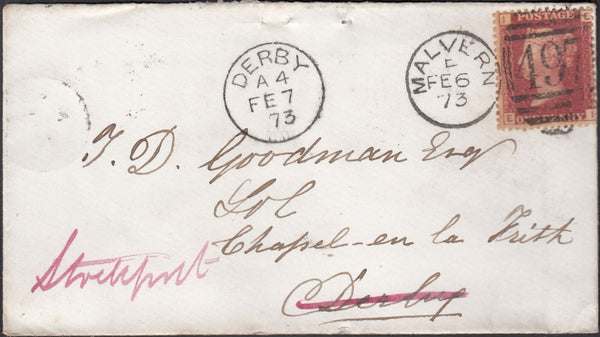 DERBY
A 4
FE 7
73
MALVERN
E
FE 6
73
I E
POSTAGE
497
E I
T. D. Goodman Esq
Sol
Chapel-en la Frith
Stockport
Derby